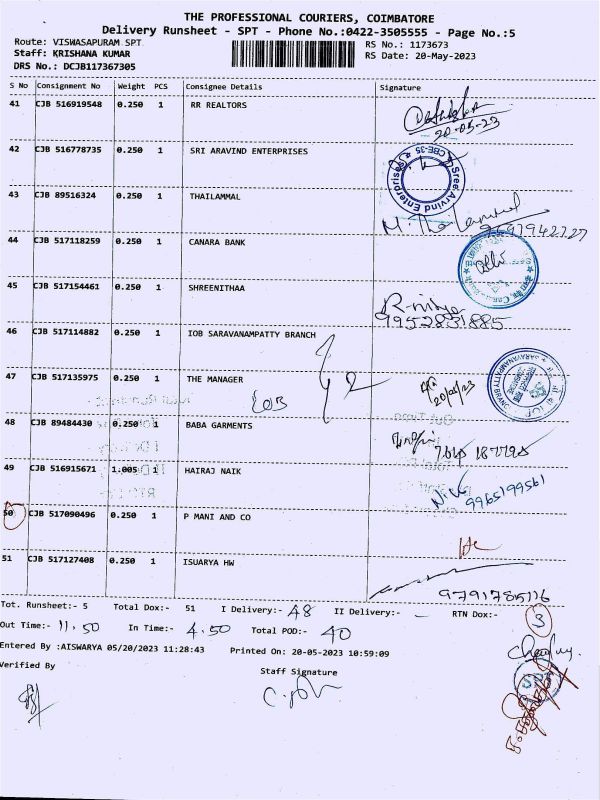 THE PROFESSIONAL COURIERS, COIMBATORE
Delivery Runsheet - SPT - Phone No.:0422-3505555 - Page No.:5
Route: VISWASAPURAM SPT RS No.: 1173673
Staff: KRISHANA KUMAR RS Date: 20-May-2023
DRS No.: DCJB117367305
S No Consignment No Weight PCS Consignee Details Signature
41 CJB 516919548 0.250 1 RR REALTORS
20-05-23
42 CJB 516778735 0.250 1 SRI ARAVIND ENTERPRISES
Sree Arvind Enterprises CBE-35
43 CJB 89516324 0.250 1 THAILAMMAL
44 CJB 517118259 0.250 1 CANARA BANK
45 CJB 517154461 0.250 1 SHREENITHAA
R-nithya
9952831885
46 CJB 517114882 0.250 1 IOB SARAVANAMPATTY BRANCH
47 CJB 517135975 0.250 1 THE MANAGER
IOB
SARAVANAMPATTY BRANCH
48 CJB 89484430 0.250 1 BABA GARMENTS
49 CJB 516915671 1.005 1 HAIRAJ NAIK
9965199561
50 CJB 517090496 0.250 1 P MANI AND CO
51 CJB 517127408 0.250 1 ISUARYA HW
9791785116
Tot. Runsheet:- 5 Total Dox:- 51 I Delivery:- 48 II Delivery:- - RTN Dox:- 3
Out Time:- 11.50 In Time:- 4.50 Total POD:- 40
Entered By :AISWARYA 05/20/2023 11:28:43 Printed On: 20-05-2023 10:59:09
Verified By Staff Signature
SPT